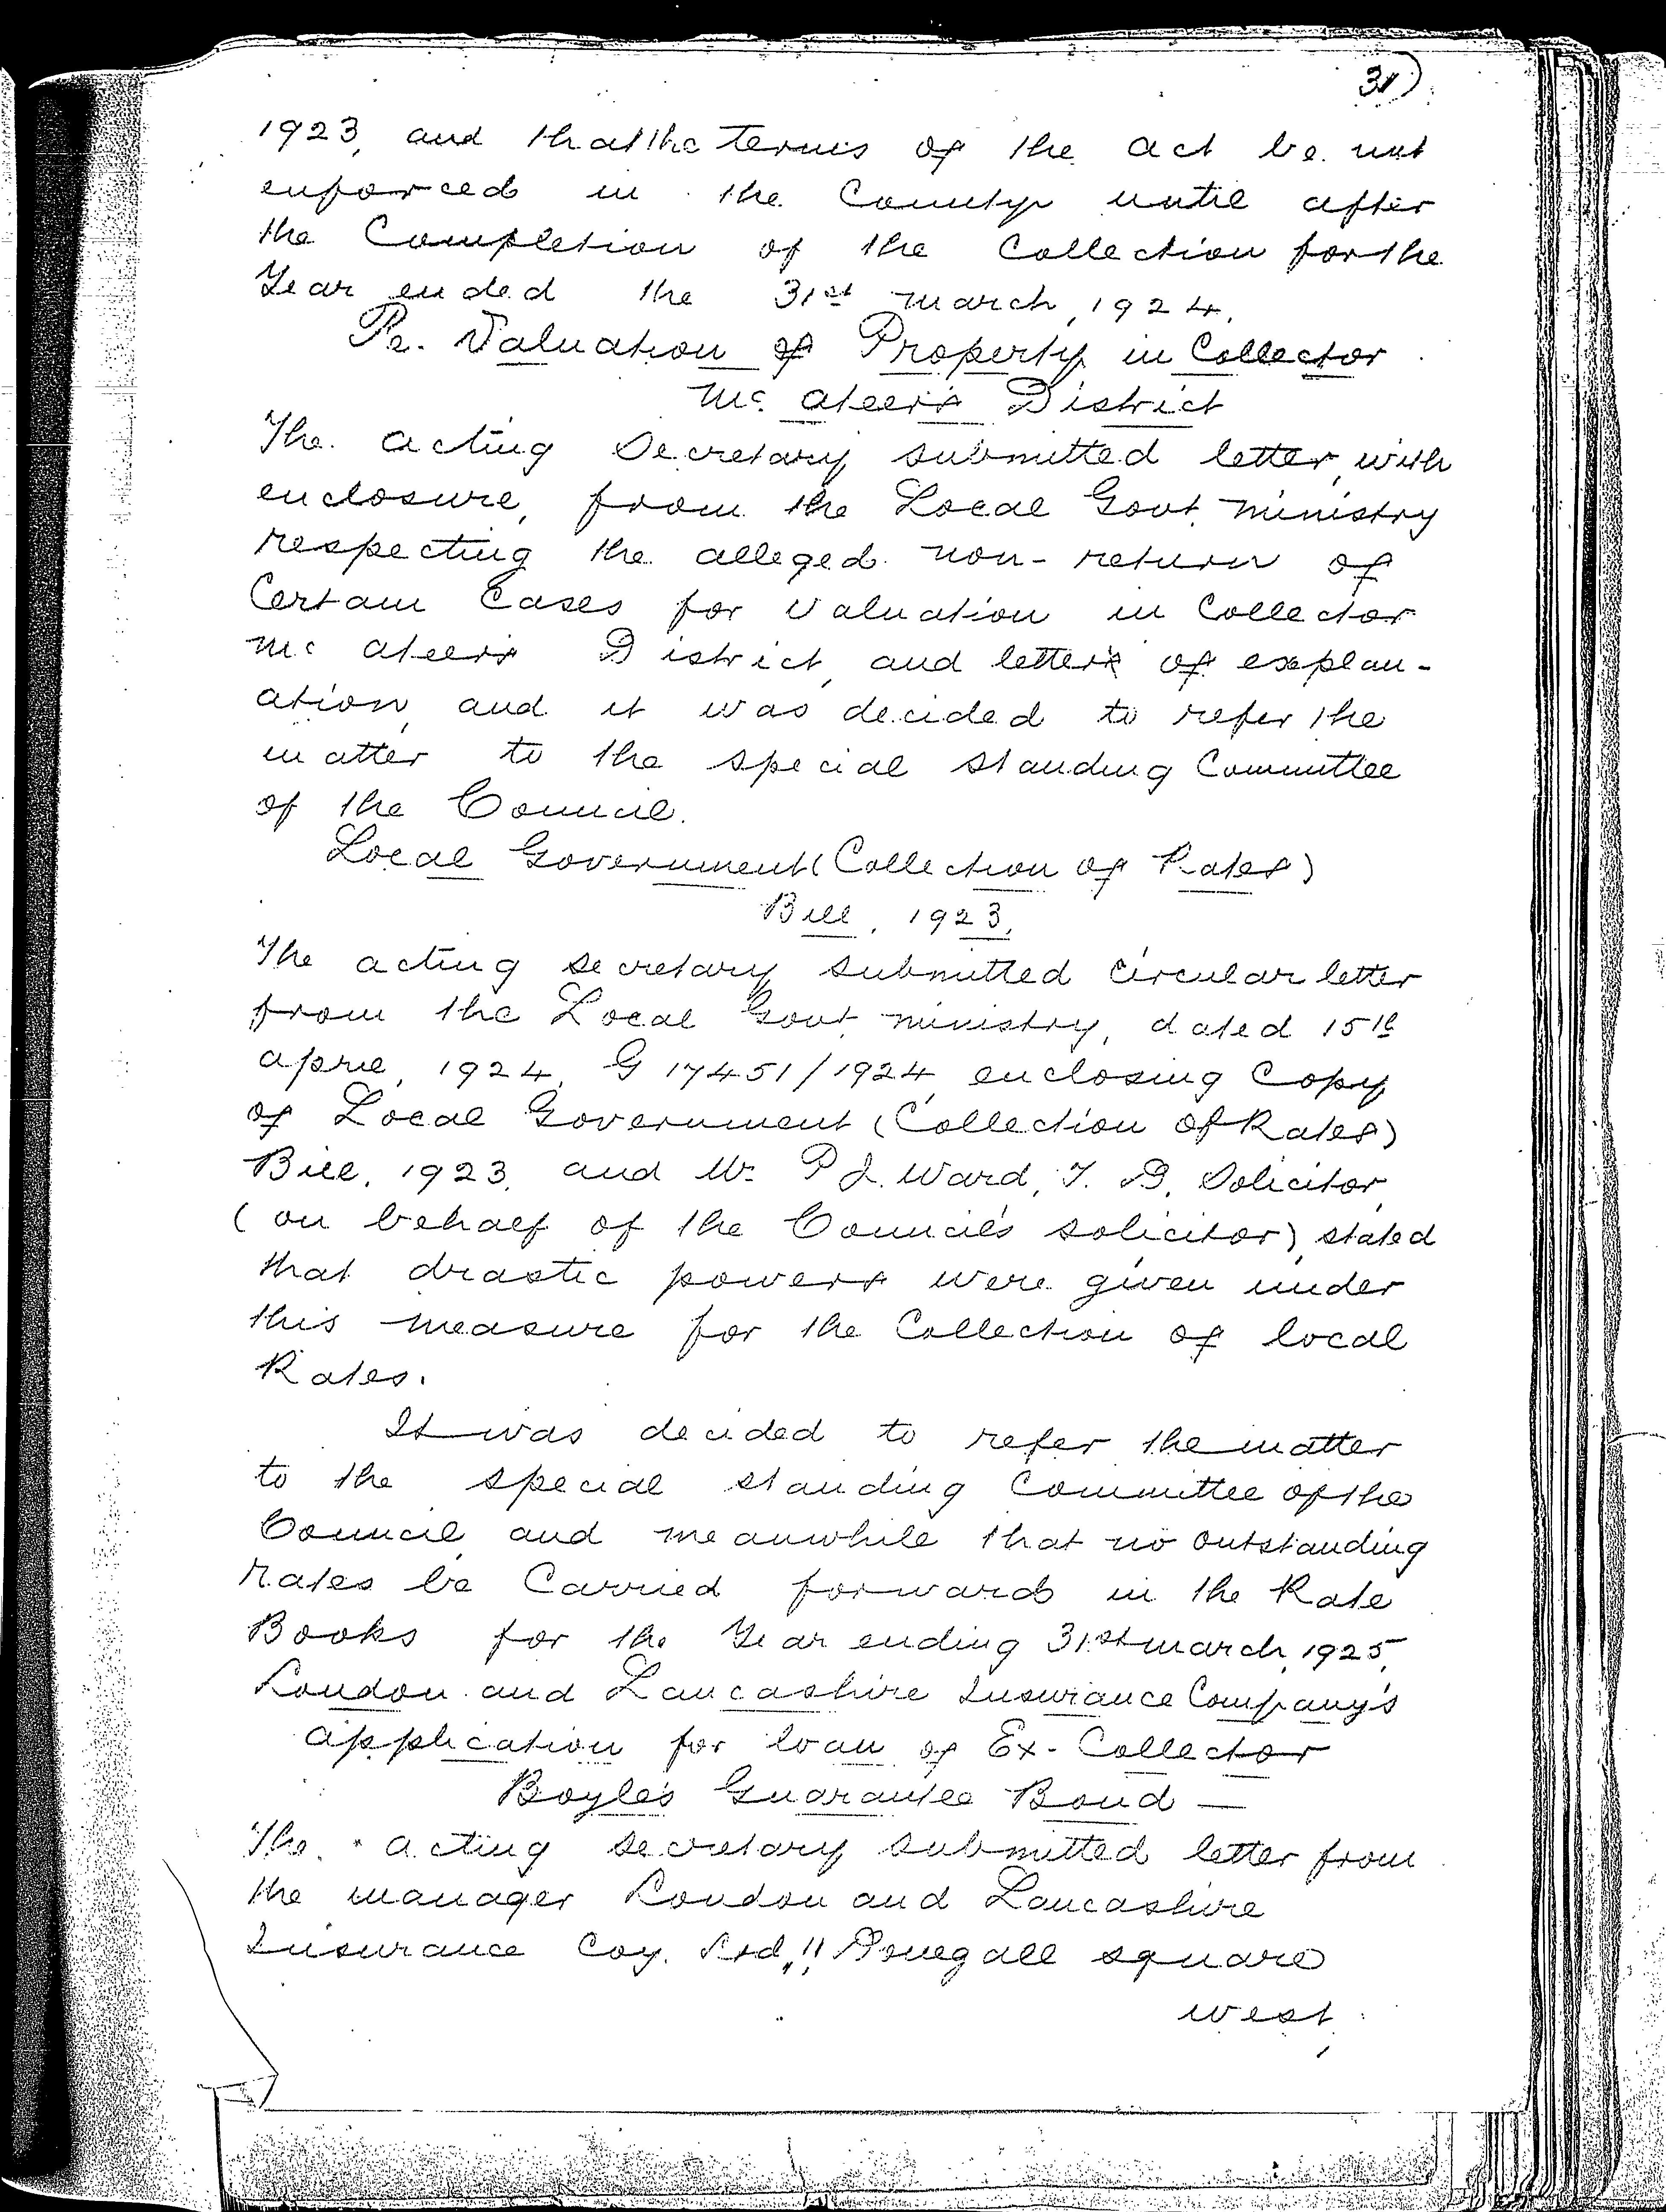 31)
1923, and that the terms of the act be not
enforced in the County until after
the Completion of the Collection for the
Year ended the 31st march, 1924.
Re. Valuation of Property in Collector
Mc. ateer's District
The acting Secretary submitted letter, with
enclosure, from the Local Govt. ministry
respecting the alleged non-return of
Certain Cases for Valuation in Collector
Mc ateer's District, and letters of explan-
ation, and it was decided to refer the
matter to the special standing Committee
of the Council.
Local Government (Collection of Rates)
Bill, 1923.
The acting secretary submitted circular letter
from the Local Govt ministry, dated 15th
april, 1924, G 17451/1924, enclosing Copy
of Local Government (Collection of Rates)
Bill, 1923, and Mr. P J. Ward, T. D, Solicitor,
(on behalf of the Council's solicitor), stated
that drastic powers were given under
this measure for the Collection of local
Rates.
It was decided to refer the matter
to the special standing Committee of the
Council, and meanwhile that no outstanding
rates be Carried forward in the Rate
Books for the Year ending 31st march, 1925.
London and Lancashire Insurance Company's
application for loan of Ex-Collector
Boyle's Guarantee Bond —
The acting secretary submitted letter from
the manager London and Lancashire
Insurance Coy. Ltd, 11 Donegall square
west,